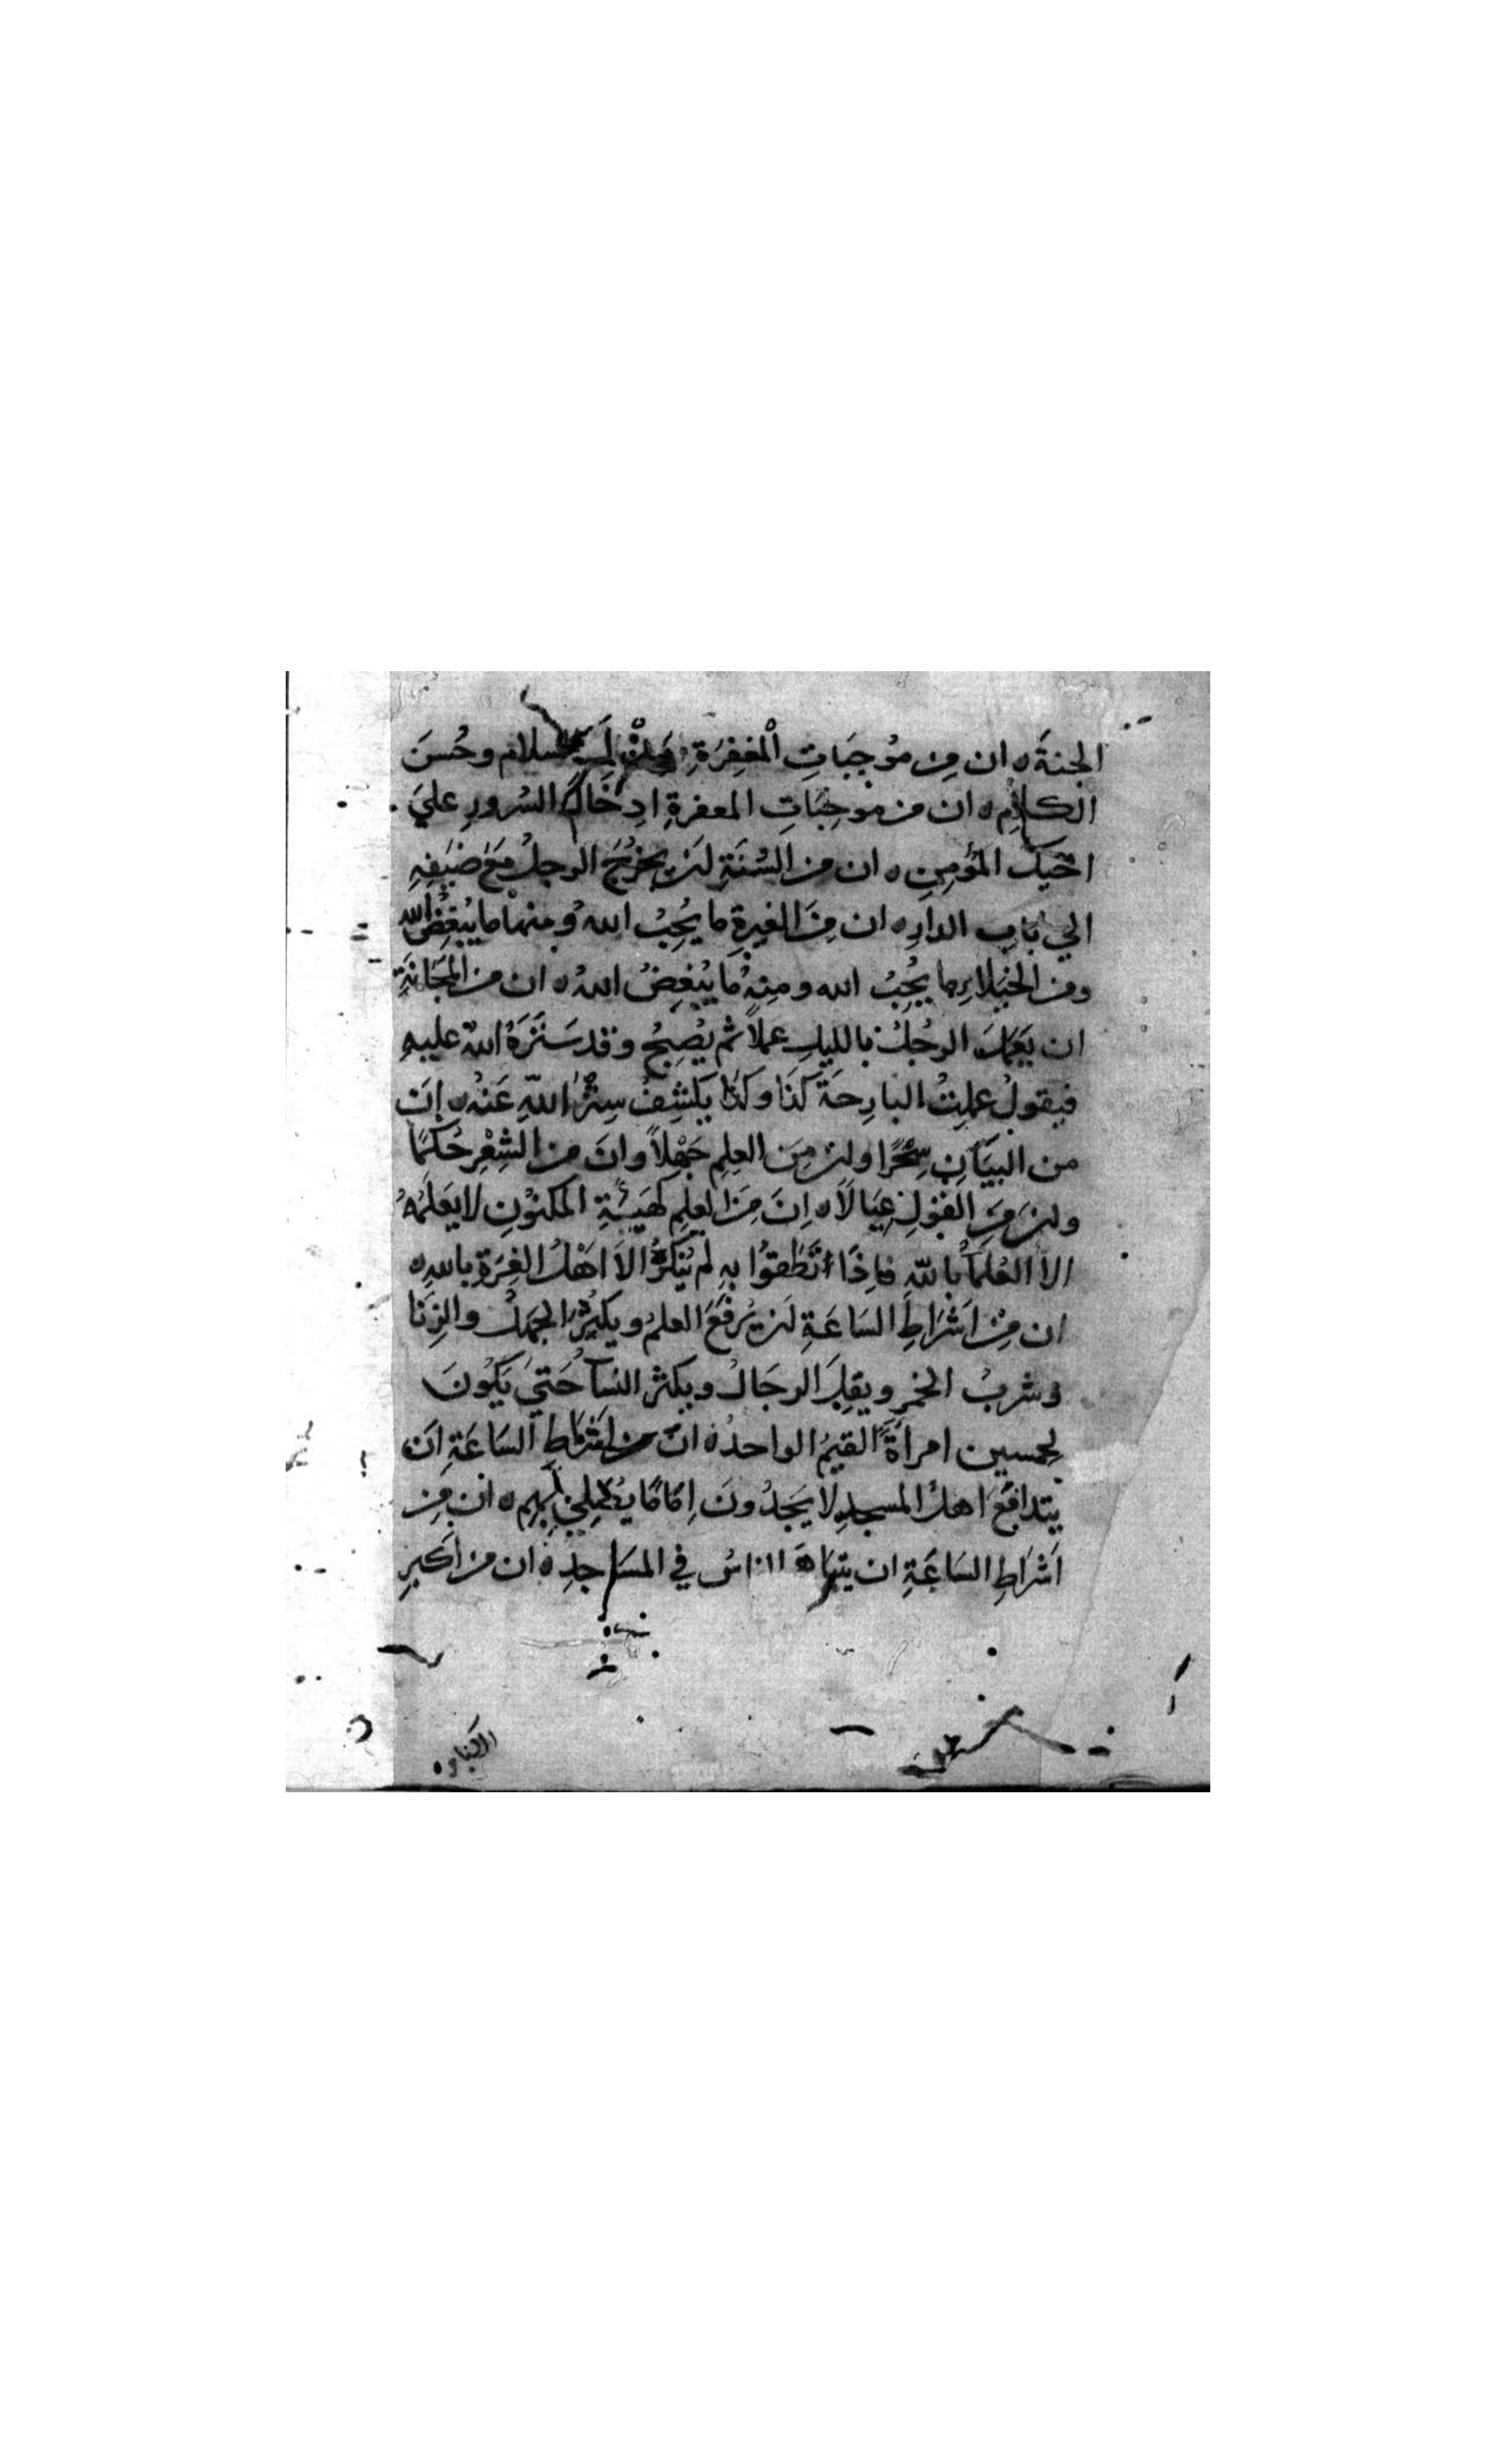 الجنةَ ه ان مِن مُوجِبَاتِ الْمَغفِرَةِ بَذْلُ السلام وحُسنَ
الكلامِ ه ان من موجِبَاتِ المغفرةِ ادِخَالَ السُرورِ عليَ
اخيك المُؤمِنِ ه ان من السُنَةِ ان يخرُجَ الرجلُ مَعَ ضَيفِهِ
الي بَابِ الدارِ ه ان مِنَ الغيرةِ ما يُحِبُ اللهُ ومنها ما يُبْغِضُ الله
ومن الخيَلاءِ ما يُحِبُ الله ومِنهُ ما يُبْغِضُ اللهُ ه ان من المَجَانَةِ
ان يَعمَلَ الرجُلُ بالليلِ عملاً ثم يُصبِحُ وقد سَتَرَهُ اللهُ عليهِ
فيقولُ عملِتُ البارِحَةَ كذَا وكذا يكشِفُ سِتْرَ اللّهِ عَنْهُ ه اِنَ
من البيَانِ سِحْرًا وان مِنَ العِلمِ جَهْلاً وانَ من الشِعْرِ حُكمًا
وان مِنَ القولِ عِيَالاً ه اِنَ مِنَ العِلمِ كهَيئَةِ المكنُونِ لا يَعلَمُهُ
الا العُلَمآُ باللّهِ فاِذَا نَطَقوُا بهِ لم يُنكرُ الاَ اَهْلُ الغِرَةِ باللهِ ه
ان مِنْ اَشْرَاطِ السَاعَةِ ان يُرفَعَ العلمُ ويكثُرُ الجهلُ والزِنَا
وشربُ الخمرِ ويقِلَ الرجَالُ ويكثر النسآُ حَتيَ يَكُونَ
لخمسين امرأةً القيمُ الواحدُ ه انَ من اَشراطِ السَاعَةِ اَن
يتدافعَ اهلُ المسجدِ لا يَجدُونَ اِمَامًا يُصَلِيَ بِهِم ه ان مِن
اَشْرَاطِ السَاعَةِ ان يتباهَ الناسُ في المسَاجدِ ه ان من اَكبرِ
الكبائر